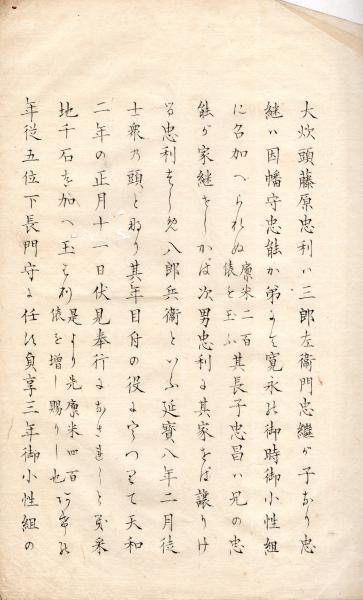 大炊頭藤原忠利ハ三郎左衛門忠継が子なり忠
継ハ因幡守忠能か弟にて寛永の御時御小性組
に召加へられぬ廩米二百俵を玉ふ其長子忠昌ハ兄の忠
能が家継きしかば次男忠利に其家をば譲りけ
る忠利はしめ八郎兵衛といふ延寶八年二月徒
士衆乃頭となり其年目付の役にうつりて天和
二年の正月十一日伏見奉行になされしと多采
地千石を加へ玉はり是より先廩米四百俵を増し賜りし也
年従五位下長門守に任す貞享三年御小性組の